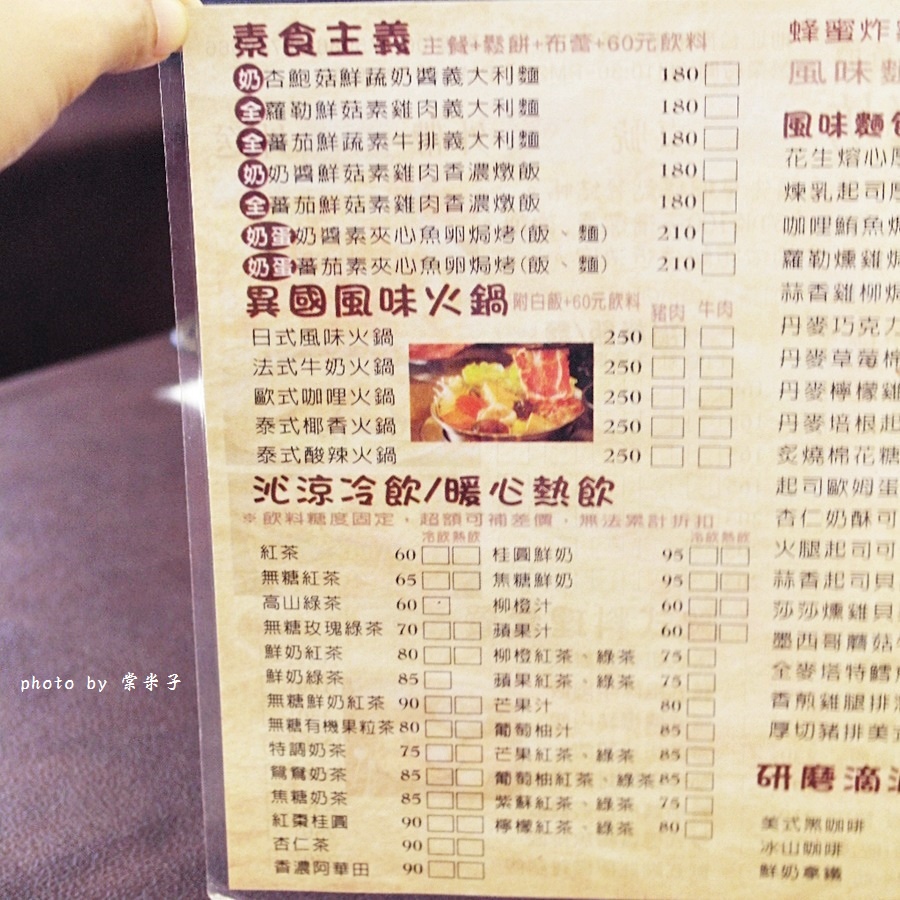 素食主義 主餐+鬆餅+布蕾+60元飲料
奶杏鮑菇鮮蔬奶醬義大利麵 180
全蘿勒鮮菇素雞肉義大利麵 180
全蕃茄鮮蔬素牛排義大利麵 180
奶奶醬鮮菇素雞肉香濃燉飯 180
全蕃茄鮮菇素雞肉香濃燉飯 180
奶蛋奶醬素夾心魚卵焗烤(飯、麵) 210
奶蛋蕃茄素夾心魚卵焗烤(飯、麵) 210
異國風味火鍋 附白飯+60元飲料 豬肉 牛肉
日式風味火鍋 250
法式牛奶火鍋 250
歐式咖哩火鍋 250
泰式椰香火鍋 250
泰式酸辣火鍋 250
沁涼冷飲/暖心熱飲
※飲料糖度固定，超額可補差價，無法累計折扣
冷飲 熱飲
紅茶 60
無糖紅茶 65
高山綠茶 60
無糖玫瑰綠茶 70
鮮奶紅茶 80
鮮奶綠茶 85
無糖鮮奶紅茶 90
無糖有機果粒茶 80
特調奶茶 75
鴛鴦奶茶 85
焦糖奶茶 85
紅棗桂圓 90
杏仁茶 90
香濃阿華田 90
冷飲 熱飲
桂圓鮮奶 95
焦糖鮮奶 95
柳橙汁 60
蘋果汁 60
柳橙紅茶、綠茶 75
蘋果紅茶、綠茶 75
芒果汁 80
葡萄柚汁 85
芒果紅茶、綠茶 85
葡萄柚紅茶、綠茶 85
紫蘇紅茶、綠茶 75
檸檬紅茶、綠茶 80
蜂蜜炸
風味
風味麵
花生熔心厚
煉乳起司厚
咖哩鮪魚焗
蘿勒燻雞焗
蒜香雞柳焗
丹麥巧克力
丹麥草莓棉
丹麥檸檬雞
丹麥培根起
炙燒棉花糖
起司歐姆蛋
杏仁奶酥可
火腿起司可
蒜香起司貝
莎莎燻雞貝
墨西哥蘑菇
全麥塔特鱈
香煎雞腿排
厚切豬排美式
研磨滴
美式黑咖啡
冰山咖啡
鮮奶拿鐵
photo by 棠米子